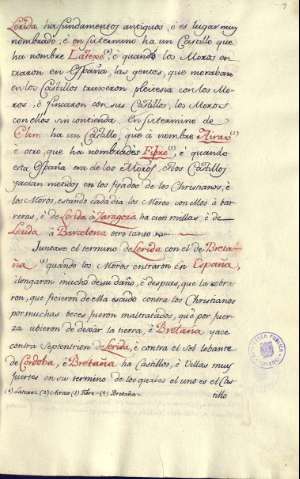 Lerida ha fundamentos antiguos, é es lugar muy
nombrado, é en su termino ha un Castillo que
ha nombre é quando los Moros en
traron en España, las gentes, que moraban
en los Castillos ficieron pleitesia con los Mo
ros, é fincaron con sus Castillos, los Moros
con ellos sin contienda. En su termino de
ha un Castillo, que á nombre
é otro, que ha nombrades é quando
esta España era de los Moros, estos Castillos
facian miedos en los de los Christianos, é
los Moros estando cada dia los Moros con ellos á bar
reras, é de Lerida á Zaragoza ha cien millas, é de
Lerida á Barcelona otro tanto ha.
Juntase el termino de Lerida con el de Breta
ña quando los Moros entraron en España,
llegaron mucho de su daño, é despues, que la cobra
ron, que ficieron de ella escudo contra los Christianos
por muchas veces fueron maltratados, que por fuer
za ubieron de dexar la tierra, é Bretaña yace
contra Septentrion de Lerida, é contra el sol lebante
de Cordoba, é Bretaña ha Castillos, é Villas muy
fuertes en su termino de los quales el uno es el Cas
tillo